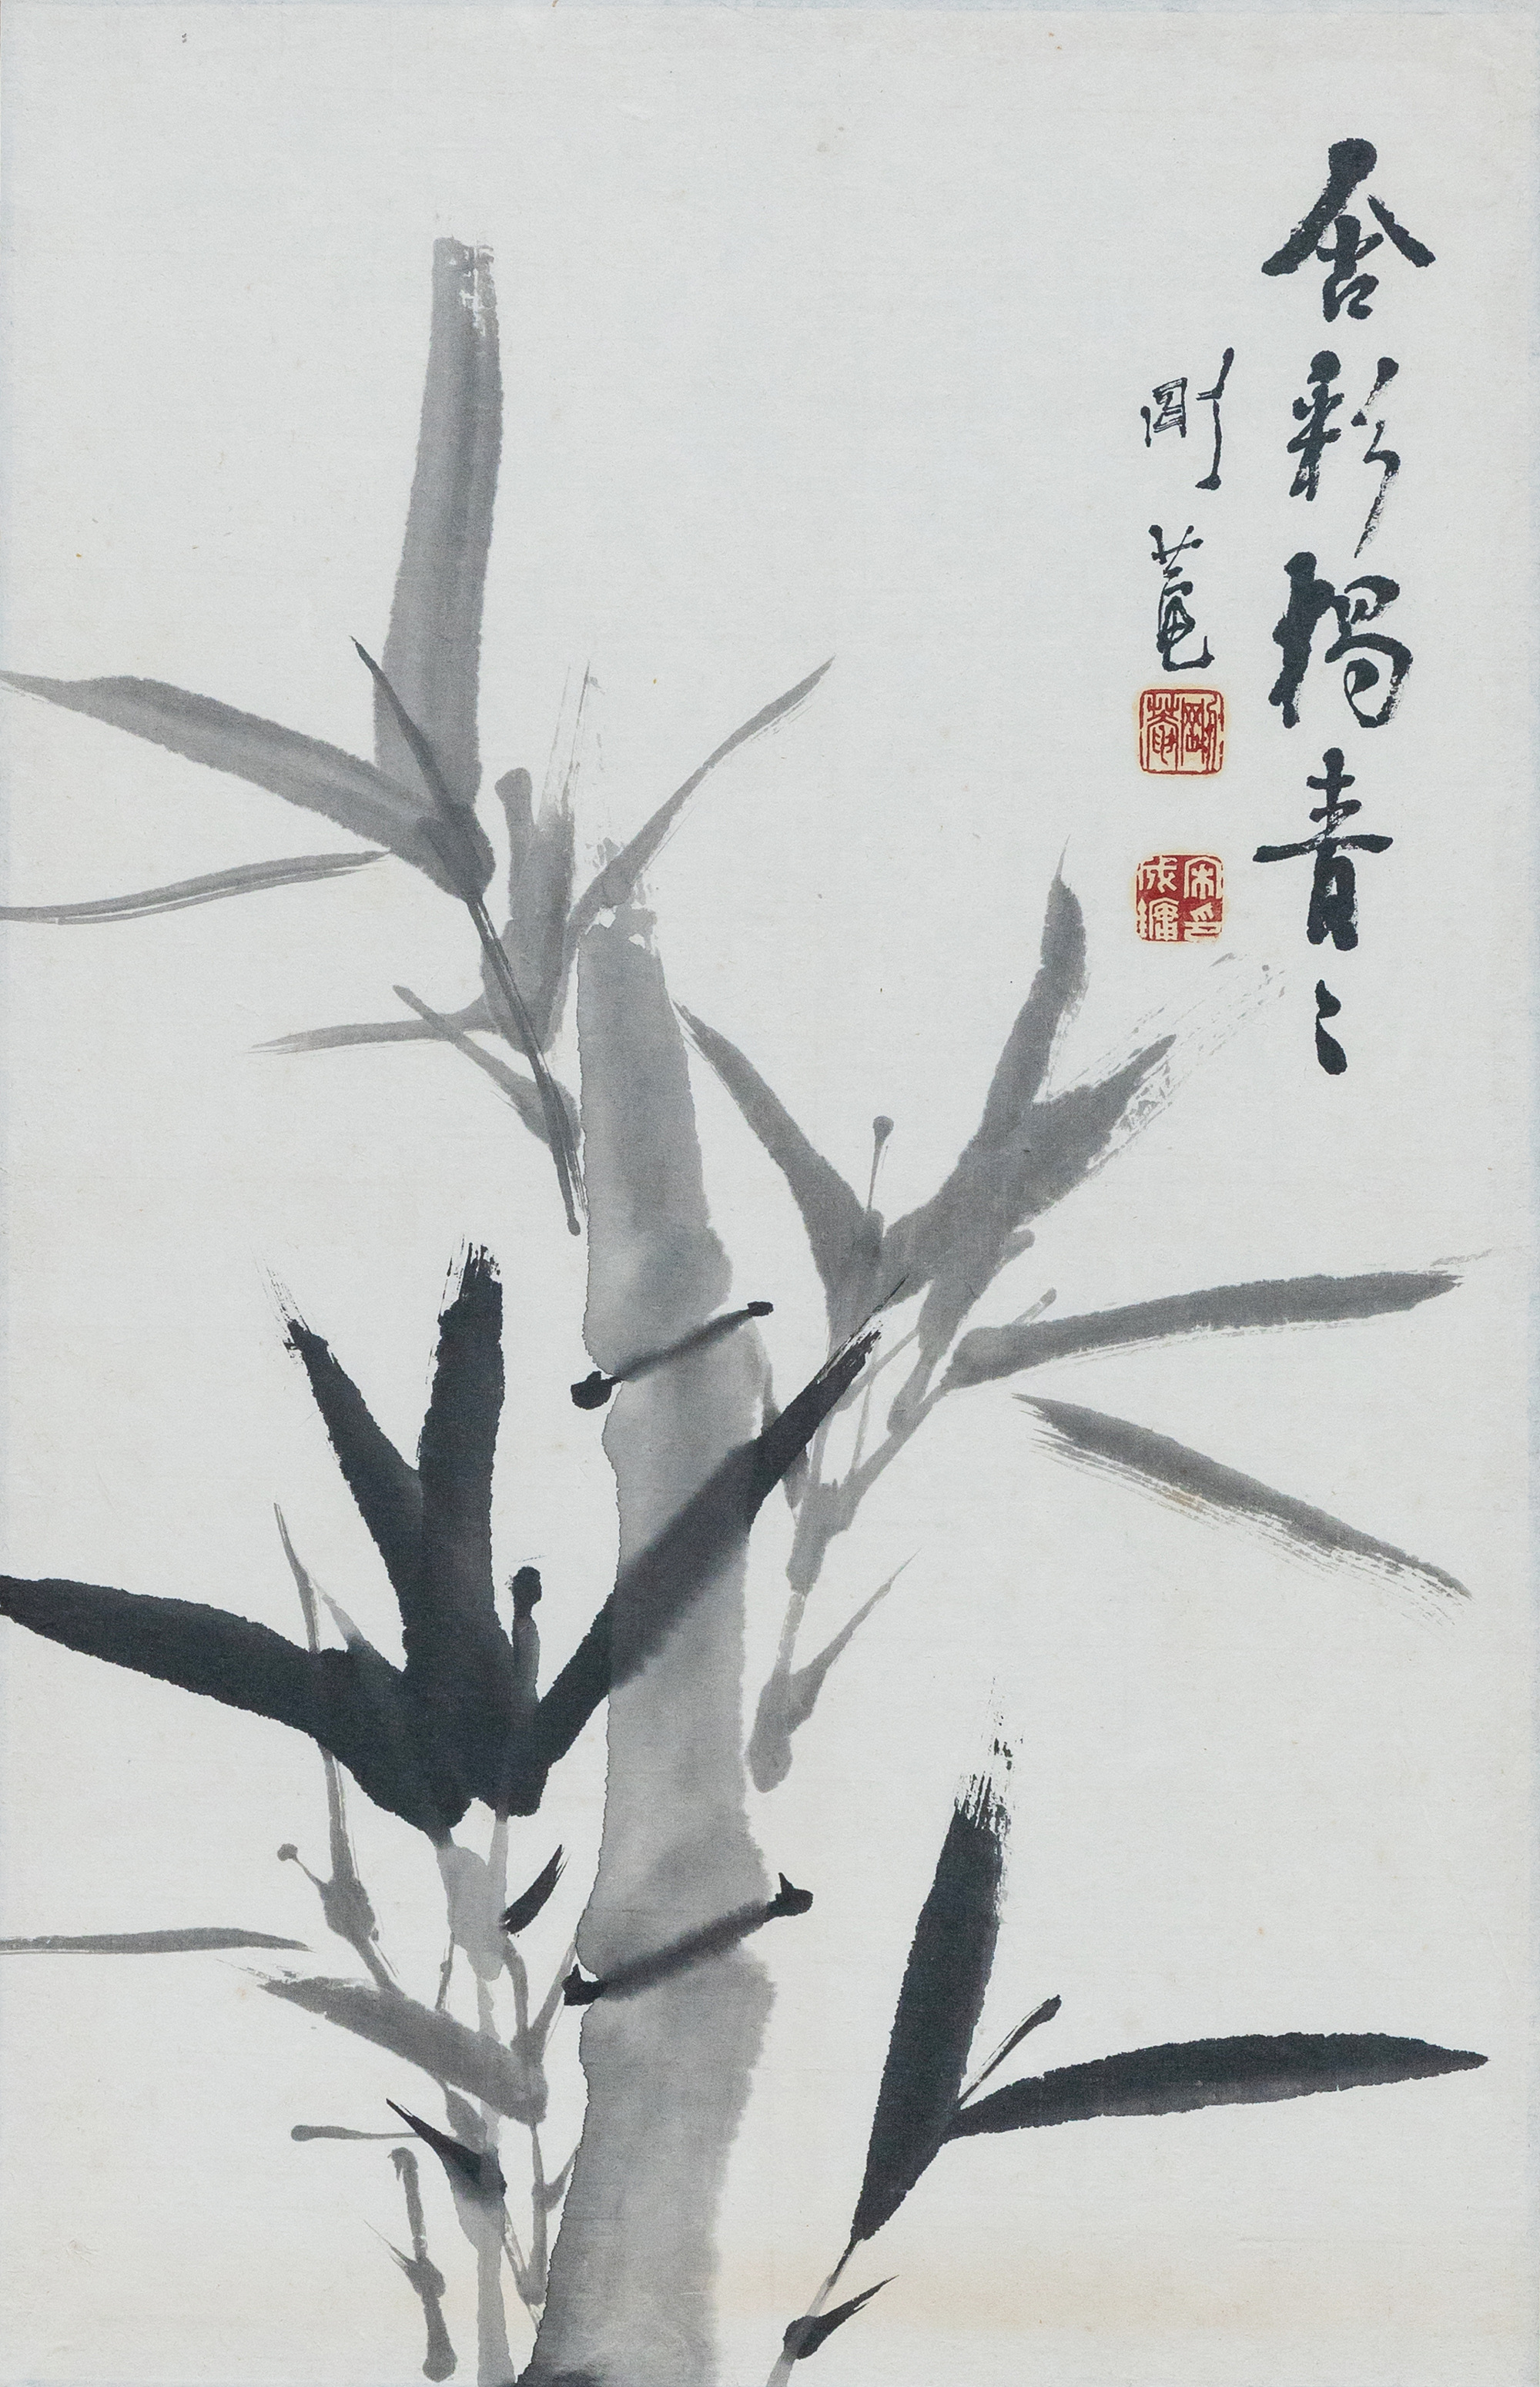 含彩獨青々
剛菴
剛菴
宋印成鏞